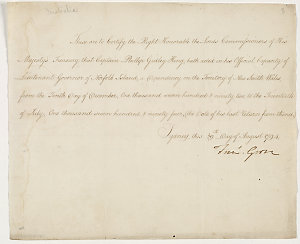 Australia
These are to Certify the Right Honorable the Lords Commissioners of His
Majestys Treasury that Captain Phillip Gidley King, hath acted in his Official Capacity of
Lieutenant Governor of Norfolk Island, a dependency on the Territory of New South Wales
from the Tenth Day of December, One thousand seven hundred & ninety two to the
of July, One thousand seven hundred & ninety four, the Date of his last Letters from thence.
Sydney, this Day of August 1794.
Fras. Grose